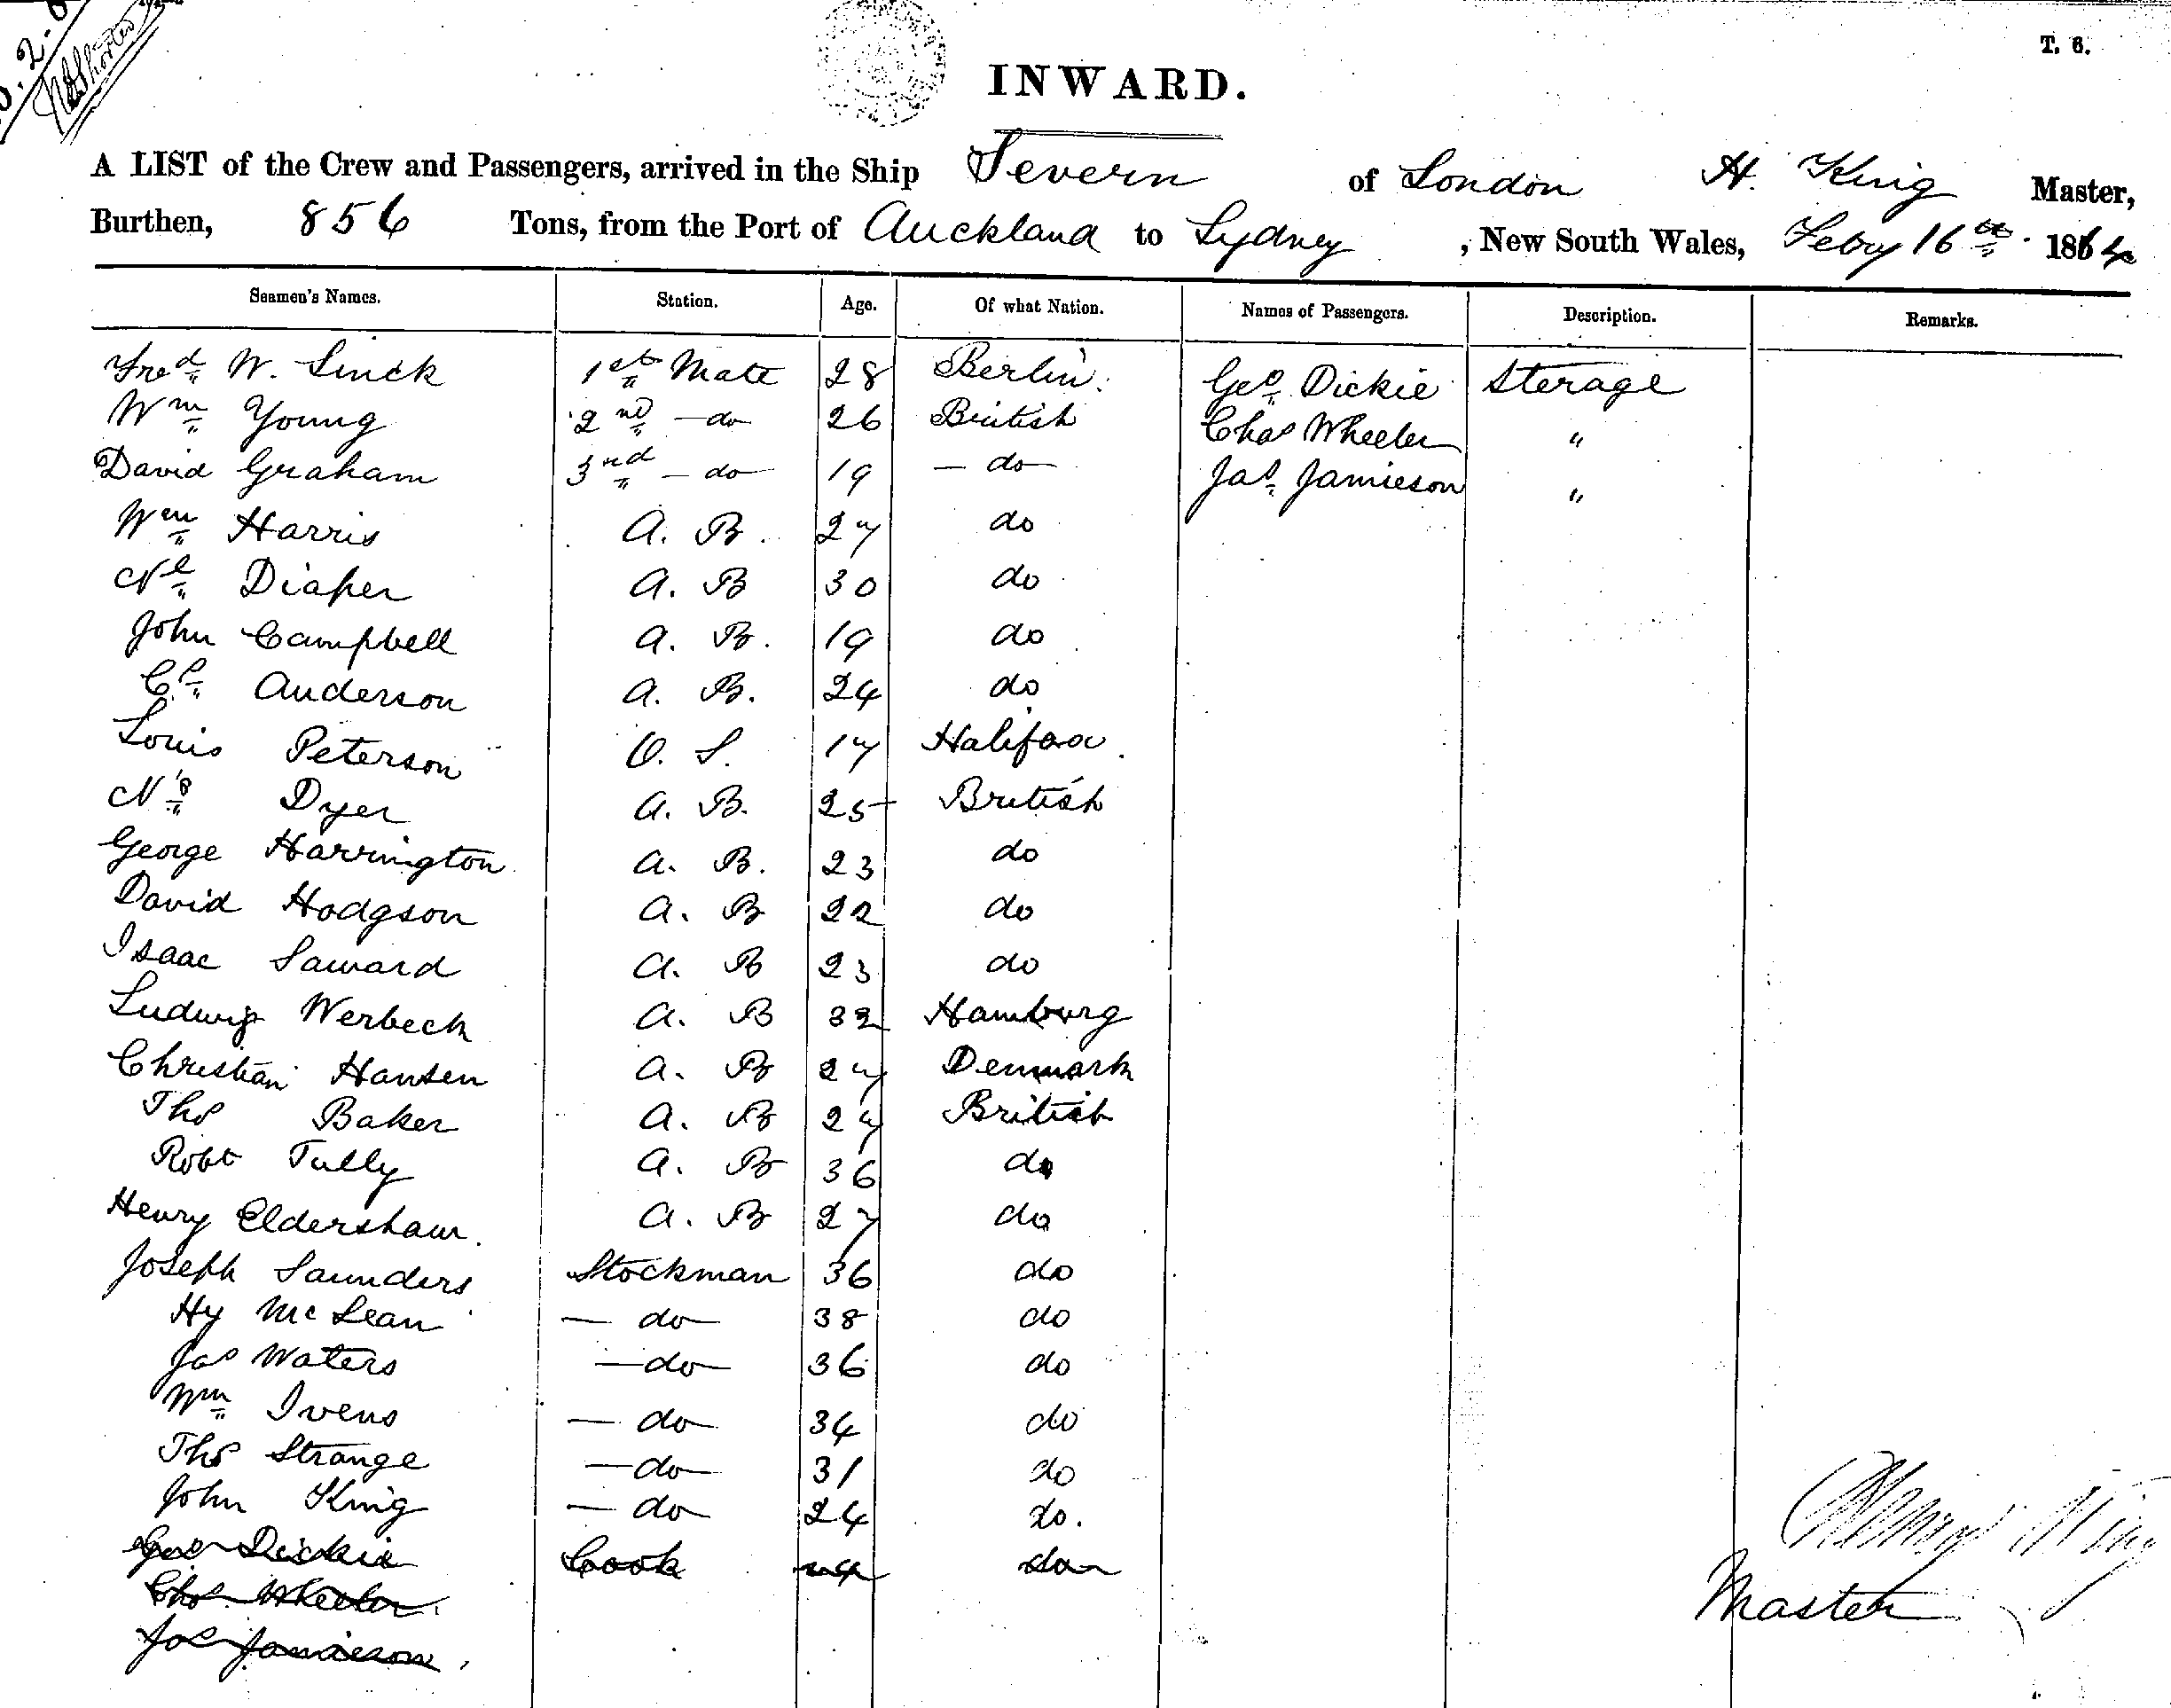 T. 6.
INWARD.
A LIST of the Crew and Passengers, arrived in the Ship Severn of London H. King Master,
Burthen, 856 Tons, from the Port of Auckland to Sydney, New South Wales, Feby 16th 1864
Seamen's Names. Station. Age. Of what Nation. Names of Passengers. Description. Remarks.
Fred W. Sinck 1st Mate 28 Berlin. Geo Dickie Sterage
Wm Young 2nd — do 26 British Chas Wheeler "
David Graham 3rd — do 19 — do — Jas Jamieson "
Wm Harris A. B. 27 do
Nl Diaper A. B 30 do
John Campbell A. B. 19 do
Cs Anderson A. B. 24 do
Louis Peterson O. S. 17 Halifax.
Dyer A. B. 25 British
George Harrington A. B. 23 do
David Hodgson A. B 22 do
Isaac Saward A. B 23 do
Ludwig Werbeck A. B 32 Hamburg
Christian Hansen A. B 27 Denmark
Thos Baker A. B 27 British
Robt Tully A. B 36 do
Henry Eldershaw. A. B 27 do
Joseph Saunders Stockman 36 do
Hy McLean — do — 38 do
Jas Waters — do — 36 do
Wm Ivens — do — 34 do
Thos Strange — do — 31 do
John King — do — 24 do.
Geo Dickie Cook 24 do
Chas Wheeler.
Jas Jamieson.
Henry King
Master